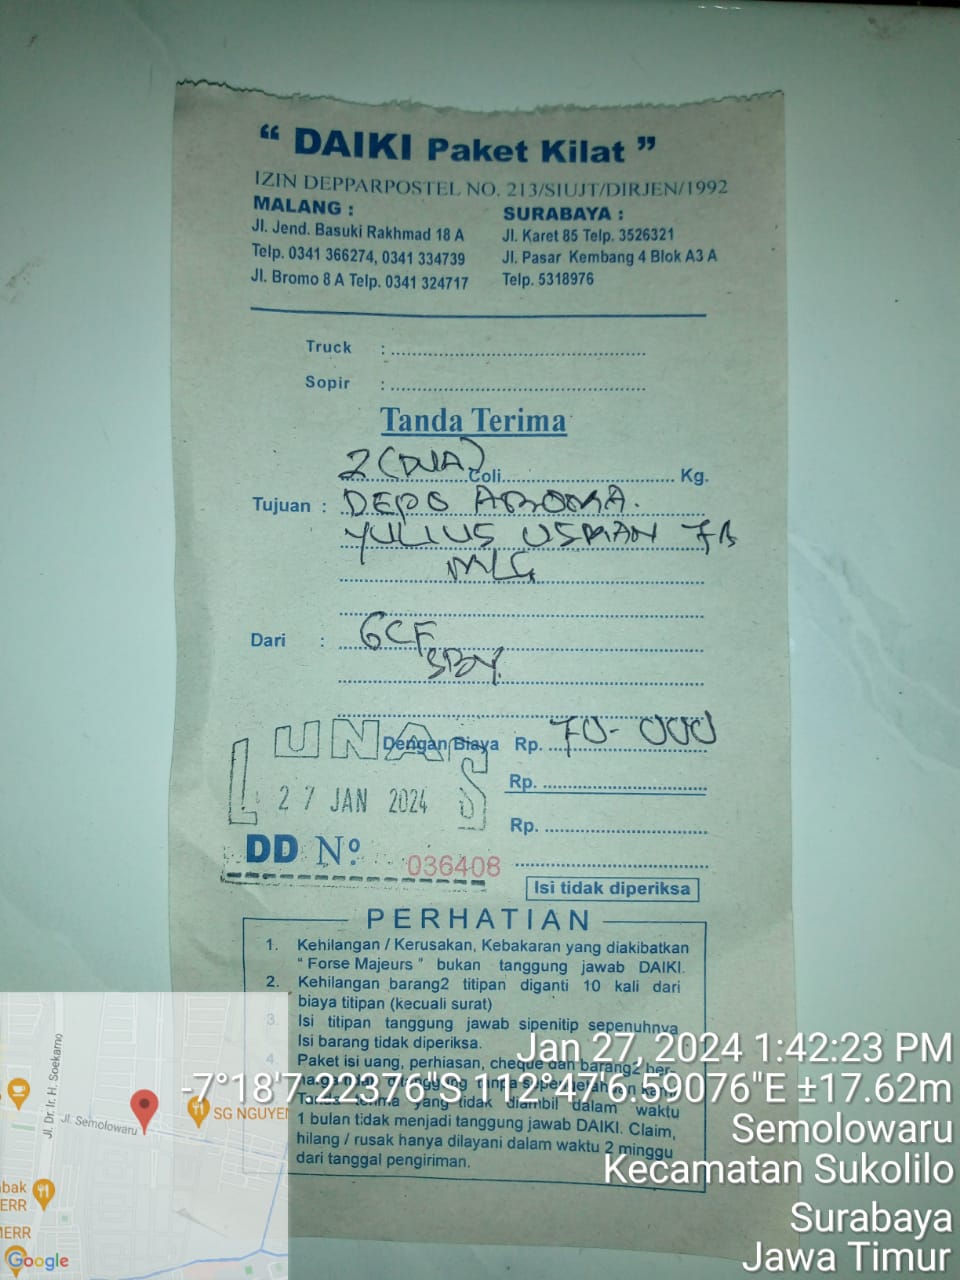 “ DAIKI Paket Kilat ”
IZIN DEPPARPOSTEL NO. 213/SIUJT/DIRJEN/1992
MALANG :
Jl. Jend. Basuki Rakhmad 18 A
Telp. 0341 366274, 0341 334739
Jl. Bromo 8 A Telp. 0341 324717
SURABAYA :
Jl. Karet 85 Telp. 3526321
Jl. Pasar Kembang 4 Blok A3 A
Telp. 5318976
Truck :
Sopir :
Tanda Terima
2 (DUA) Coli Kg.
Tujuan : DEPO AROMA.
YULIUS USMAN 7B
MLG
Dari : GCF
SBY.
Dengan Biaya Rp. 70-000
LUNAS
27 JAN 2024
Rp.
Rp.
DD Nº 036408
Isi tidak diperiksa
PERHATIAN
1. Kehilangan / Kerusakan, Kebakaran yang diakibatkan
“ Forse Majeurs ” bukan tanggung jawab DAIKI.
2. Kehilangan barang2 titipan diganti 10 kali dari
biaya titipan (kecuali surat)
3. Isi titipan tanggung jawab sipenitip sepenuhnya
Isi barang tidak diperiksa.
4. Paket isi uang, perhiasan, cheque dan barang2 ber-
yang tidak diambil dalam waktu
1 bulan tidak menjadi tanggung jawab DAIKI. Claim,
hilang / rusak hanya dilayani dalam waktu 2 minggu
dari tanggal pengiriman.
Jan 27, 2024 1:42:23 PM
-7°18'7.22376"S 112°47'6.59076"E ±17.62m
Semolowaru
Kecamatan Sukolilo
Surabaya
Jawa Timur
Jl. Dr. Ir. H. Soekarno
Jl. Semolowaru
SG NGUYEN
bak
ERR
MERR
Google